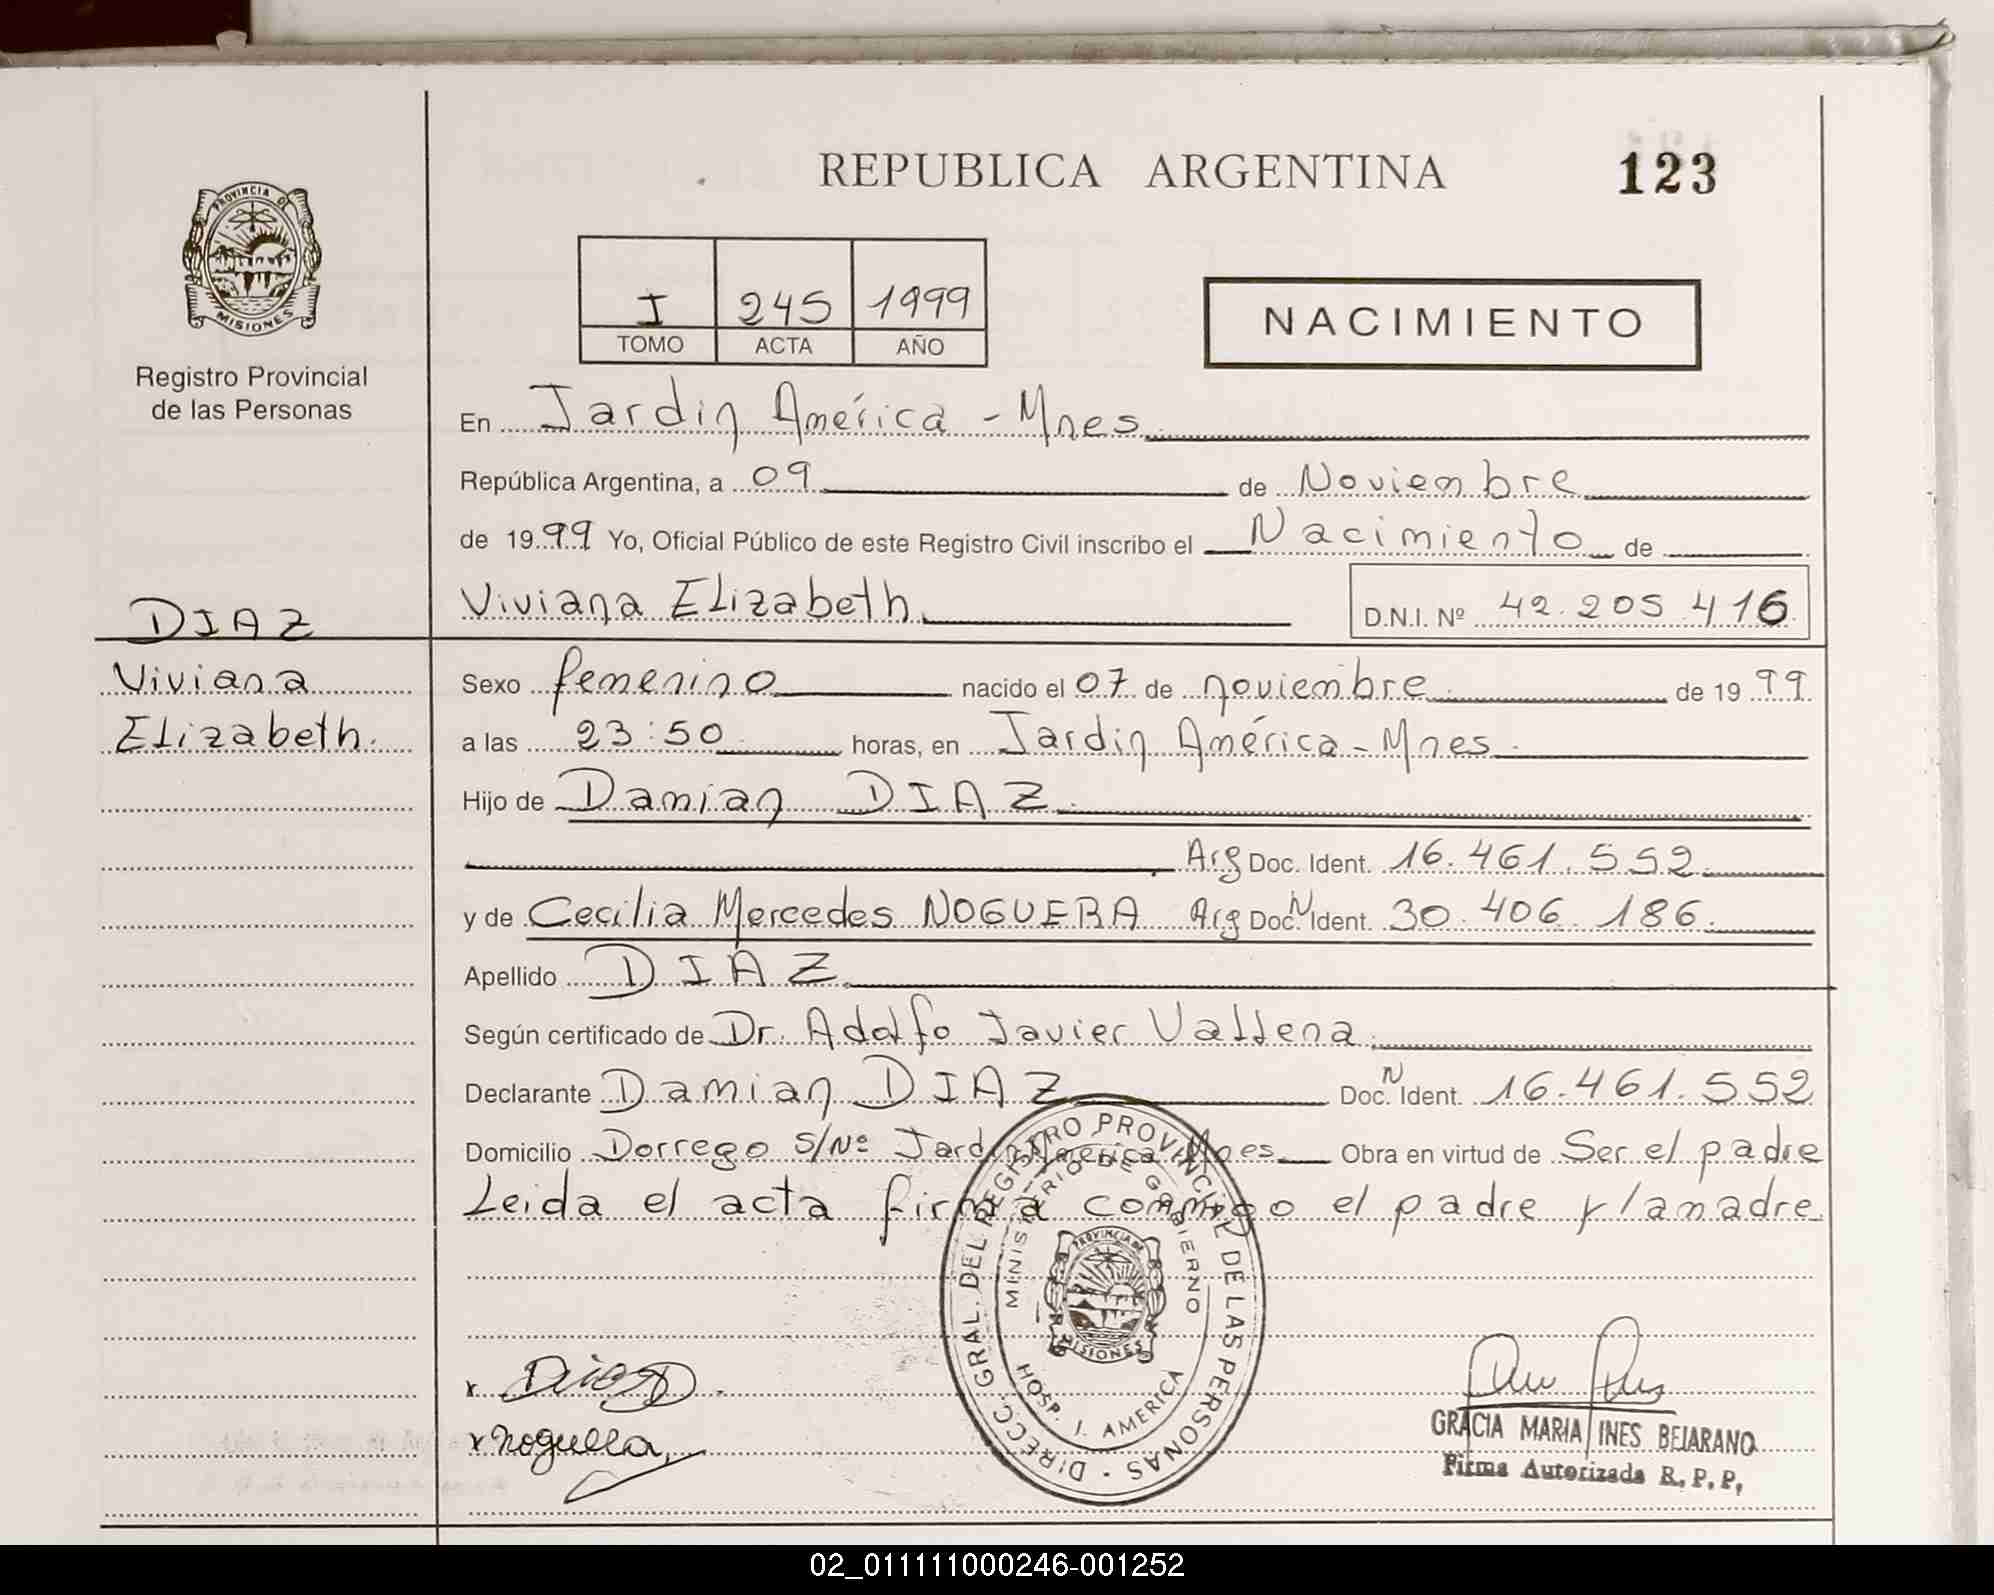 REPUBLICA ARGENTINA
123
PROVINCIA DE
MISIONES
Registro Provincial
de las Personas
I 245 1999
TOMO ACTA AÑO
NACIMIENTO
En Jardin América - Mnes.
República Argentina, a 09 de Noviembre
de 1999 Yo, Oficial Público de este Registro Civil inscribo el Nacimiento de
Viviana Elizabeth
D.N.I. Nº 42.205.416
DIAZ
Viviana
Elizabeth.
Sexo femenino nacido el 07 de noviembre de 1999
a las 23:50 horas, en Jardin América - Mnes.
Hijo de Damian DIAZ.
Arg Doc. Ident. 16.461.552
y de Cecilia Mercedes NOGUERA Arg Doc. N Ident. 30.406.186.
Apellido DIAZ.
Según certificado de Dr. Adolfo Javier
Declarante Damian DIAZ Doc. N Ident. 16.461.552
Domicilio Dorrego S/Nº Jardin América Mnes. Obra en virtud de Ser el padre
Leida el acta firma conmigo el padre y/la madre.
DIRECC. GRAL. DEL REGISTRO PROVINCIAL DE LAS PERSONAS
MINISTERIO DE GOBIERNO
PROVINCIA DE
MISIONES
HOSP. J. AMERICA
x Diaz D
x Noguera
GRACIA MARIA INES BEJARANO
Firma Autorizada R.P.P.
02_011111000246-001252